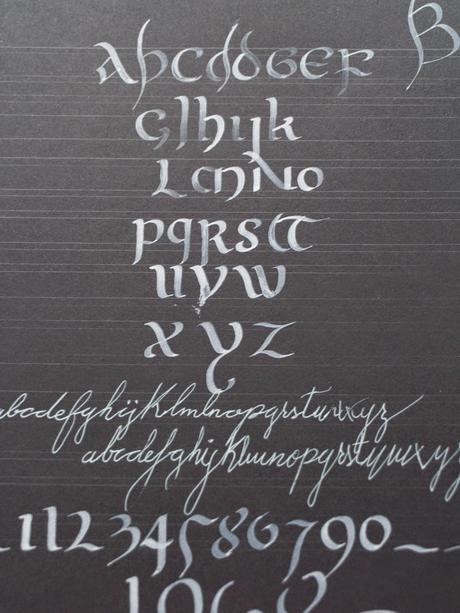 B
abcddeGEF
Glhijk
LmNo
pqrstt
uvw
xyz
abcdefghijklmnopqrstuvxyz
abcdefghijklmnopqrstuvwxyz
11234586790